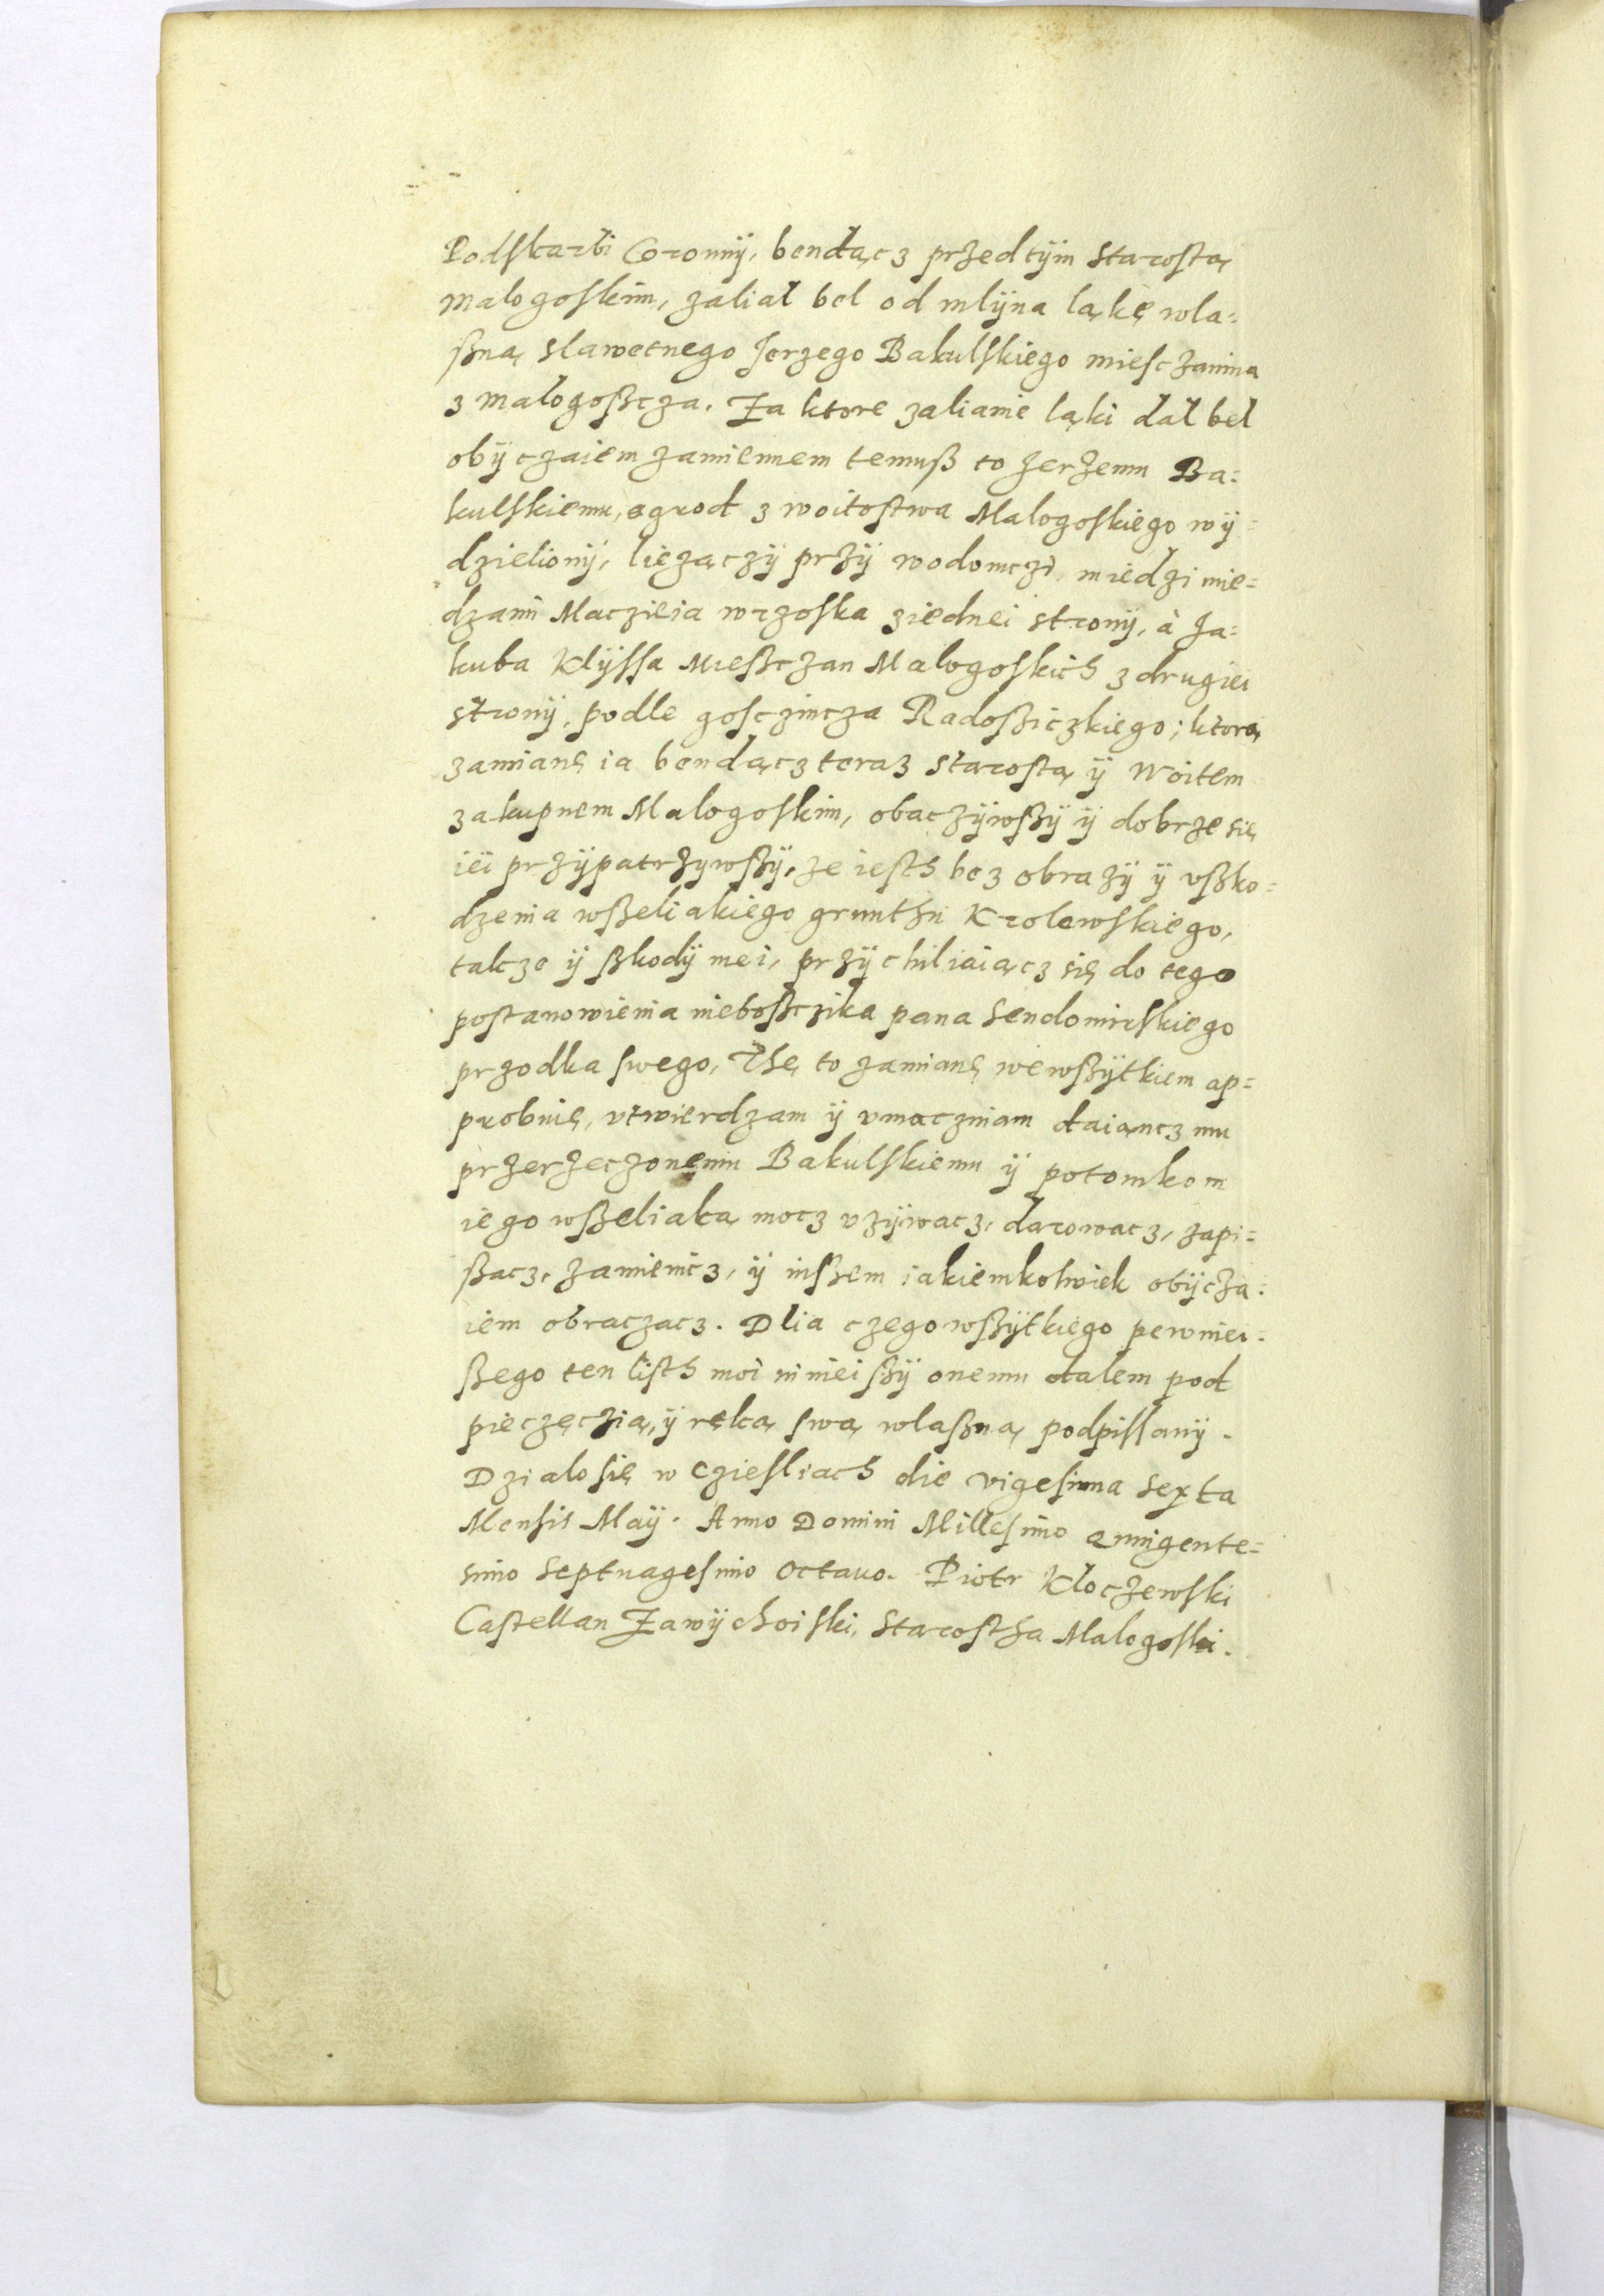 Podskarbi Coronny, bendącz przedtÿm Starostą
Malogoskim, zalial bel od mlÿna ląkę wla=
ßną Slawetnego Jerzego Bakulskiego miesczanina
z Malogoßcza. Za ktore zalianie ląki dal bel
obÿczaiem zamiennem temuß to Jerzemu Ba=
kulskiemu, ogrod z woitostwa Malogoskiego wÿ=
dzielionÿ, liezączÿ przÿ wodomczi, miedzi mie=
dzami Maczieia wrzoska ziednei stronÿ, à Ja=
kuba Klÿssa Mießczan Malogoskich z drugiei
stronÿ, podle gosczincza Radoßiczkiego; ktorą
zamianę ia bendącz teraz Starostą ÿ Woitem
zakupnem Malogoskim, obaczÿwßÿ ÿ dobrze się
iei przÿpatrzywßÿ, ze iesth bez obrazÿ ÿ vßko=
dzenia wßeliakiego grunthu Krolewskiego,
takze ÿ ßkodÿ mei, przÿchiliaiącz się do tego
postanowienia nieboßczika pana Sendomirskiego
przodka swego, Thę to zamianę wewßÿtkiem ap=
probuię, vtwierdzam ÿ vmaczniam daiancz mu
przerzeczonemu Bakulskiemu ÿ potomkom
iego wßeliaką mocz vzÿwacz, darowacz, zapi=
ßacz, zamienicz, ÿ inßem iakiemkolwiek obÿcza=
iem obraczacz. Dlia czego wßÿtkiego pewniei=
ßego ten listh moi ninieißÿ onemu dalem pod
pieczęczią, ÿ ręką swą wlaßną podpissanÿ.
Dzialo się w Czieslach die vigesima sexta
Mensis Maÿ. Anno Domini Millesimo quingente=
simo septuagesimo octauo. Piotr Kloczewski
Castellan Zawÿchoiski, Starostha Malogoski.